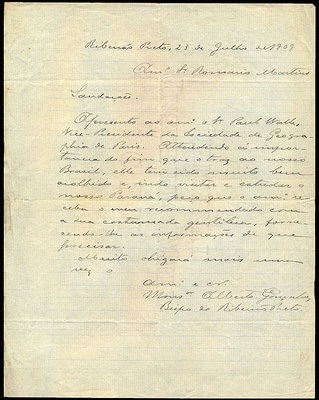 Ribeirão Preto, 23 de Julho de 1909
Am.º Sr. Romario Martins
Saudações.
Apresento ao am.º o Sr. Paul Walle,
Vice-Presidente da Sociedade de Geogra-
phia de Paris. Attendendo á impor-
tancia do fim que o traz ao nosso
Brasil, elle tem sido muito bem
acolhido e, indo visitar e estudar o
nosso Paraná, peço que o am.º re-
ceba o meu recommendado com
a sua costumada gentileza, forne-
cendo-lhe as informações de que
precisar.
Muito obrigará mais uma
vez o
Am.º e
Mons.r Alberto Gonçalves
Bispo de Ribeirão Preto.